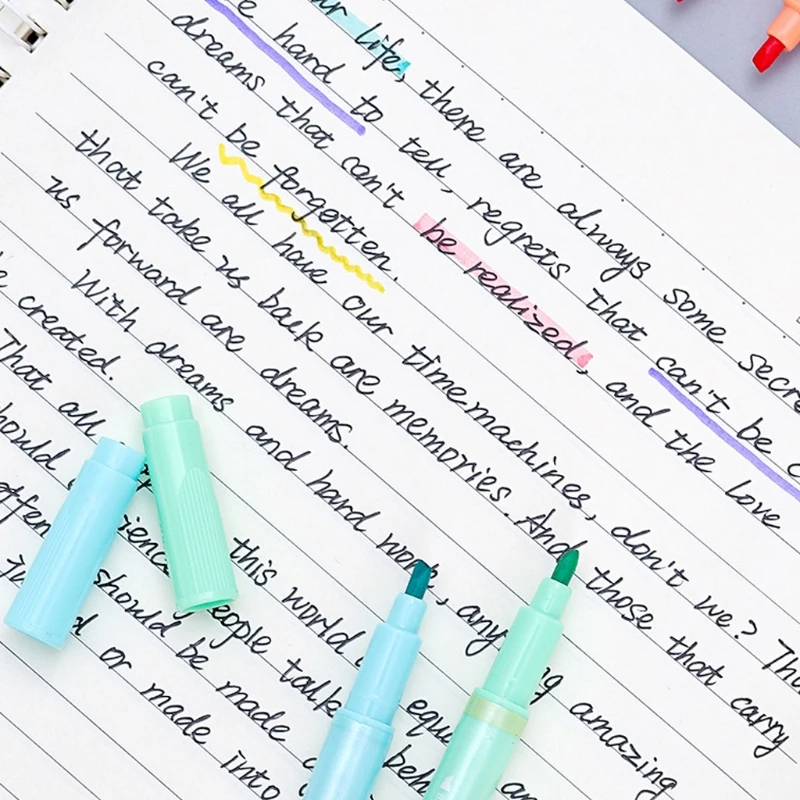 life, there are always some
hard to tell, regrets that can't be
dreams that can't be realized, and the love
can't be forgotten.
We all have our timemachines, don't we?
that take us back are memories. And those that carry
us forward are dreams.
With dreams and hard work, amazing
created.
That all this world
people talk
often should be made
or made into